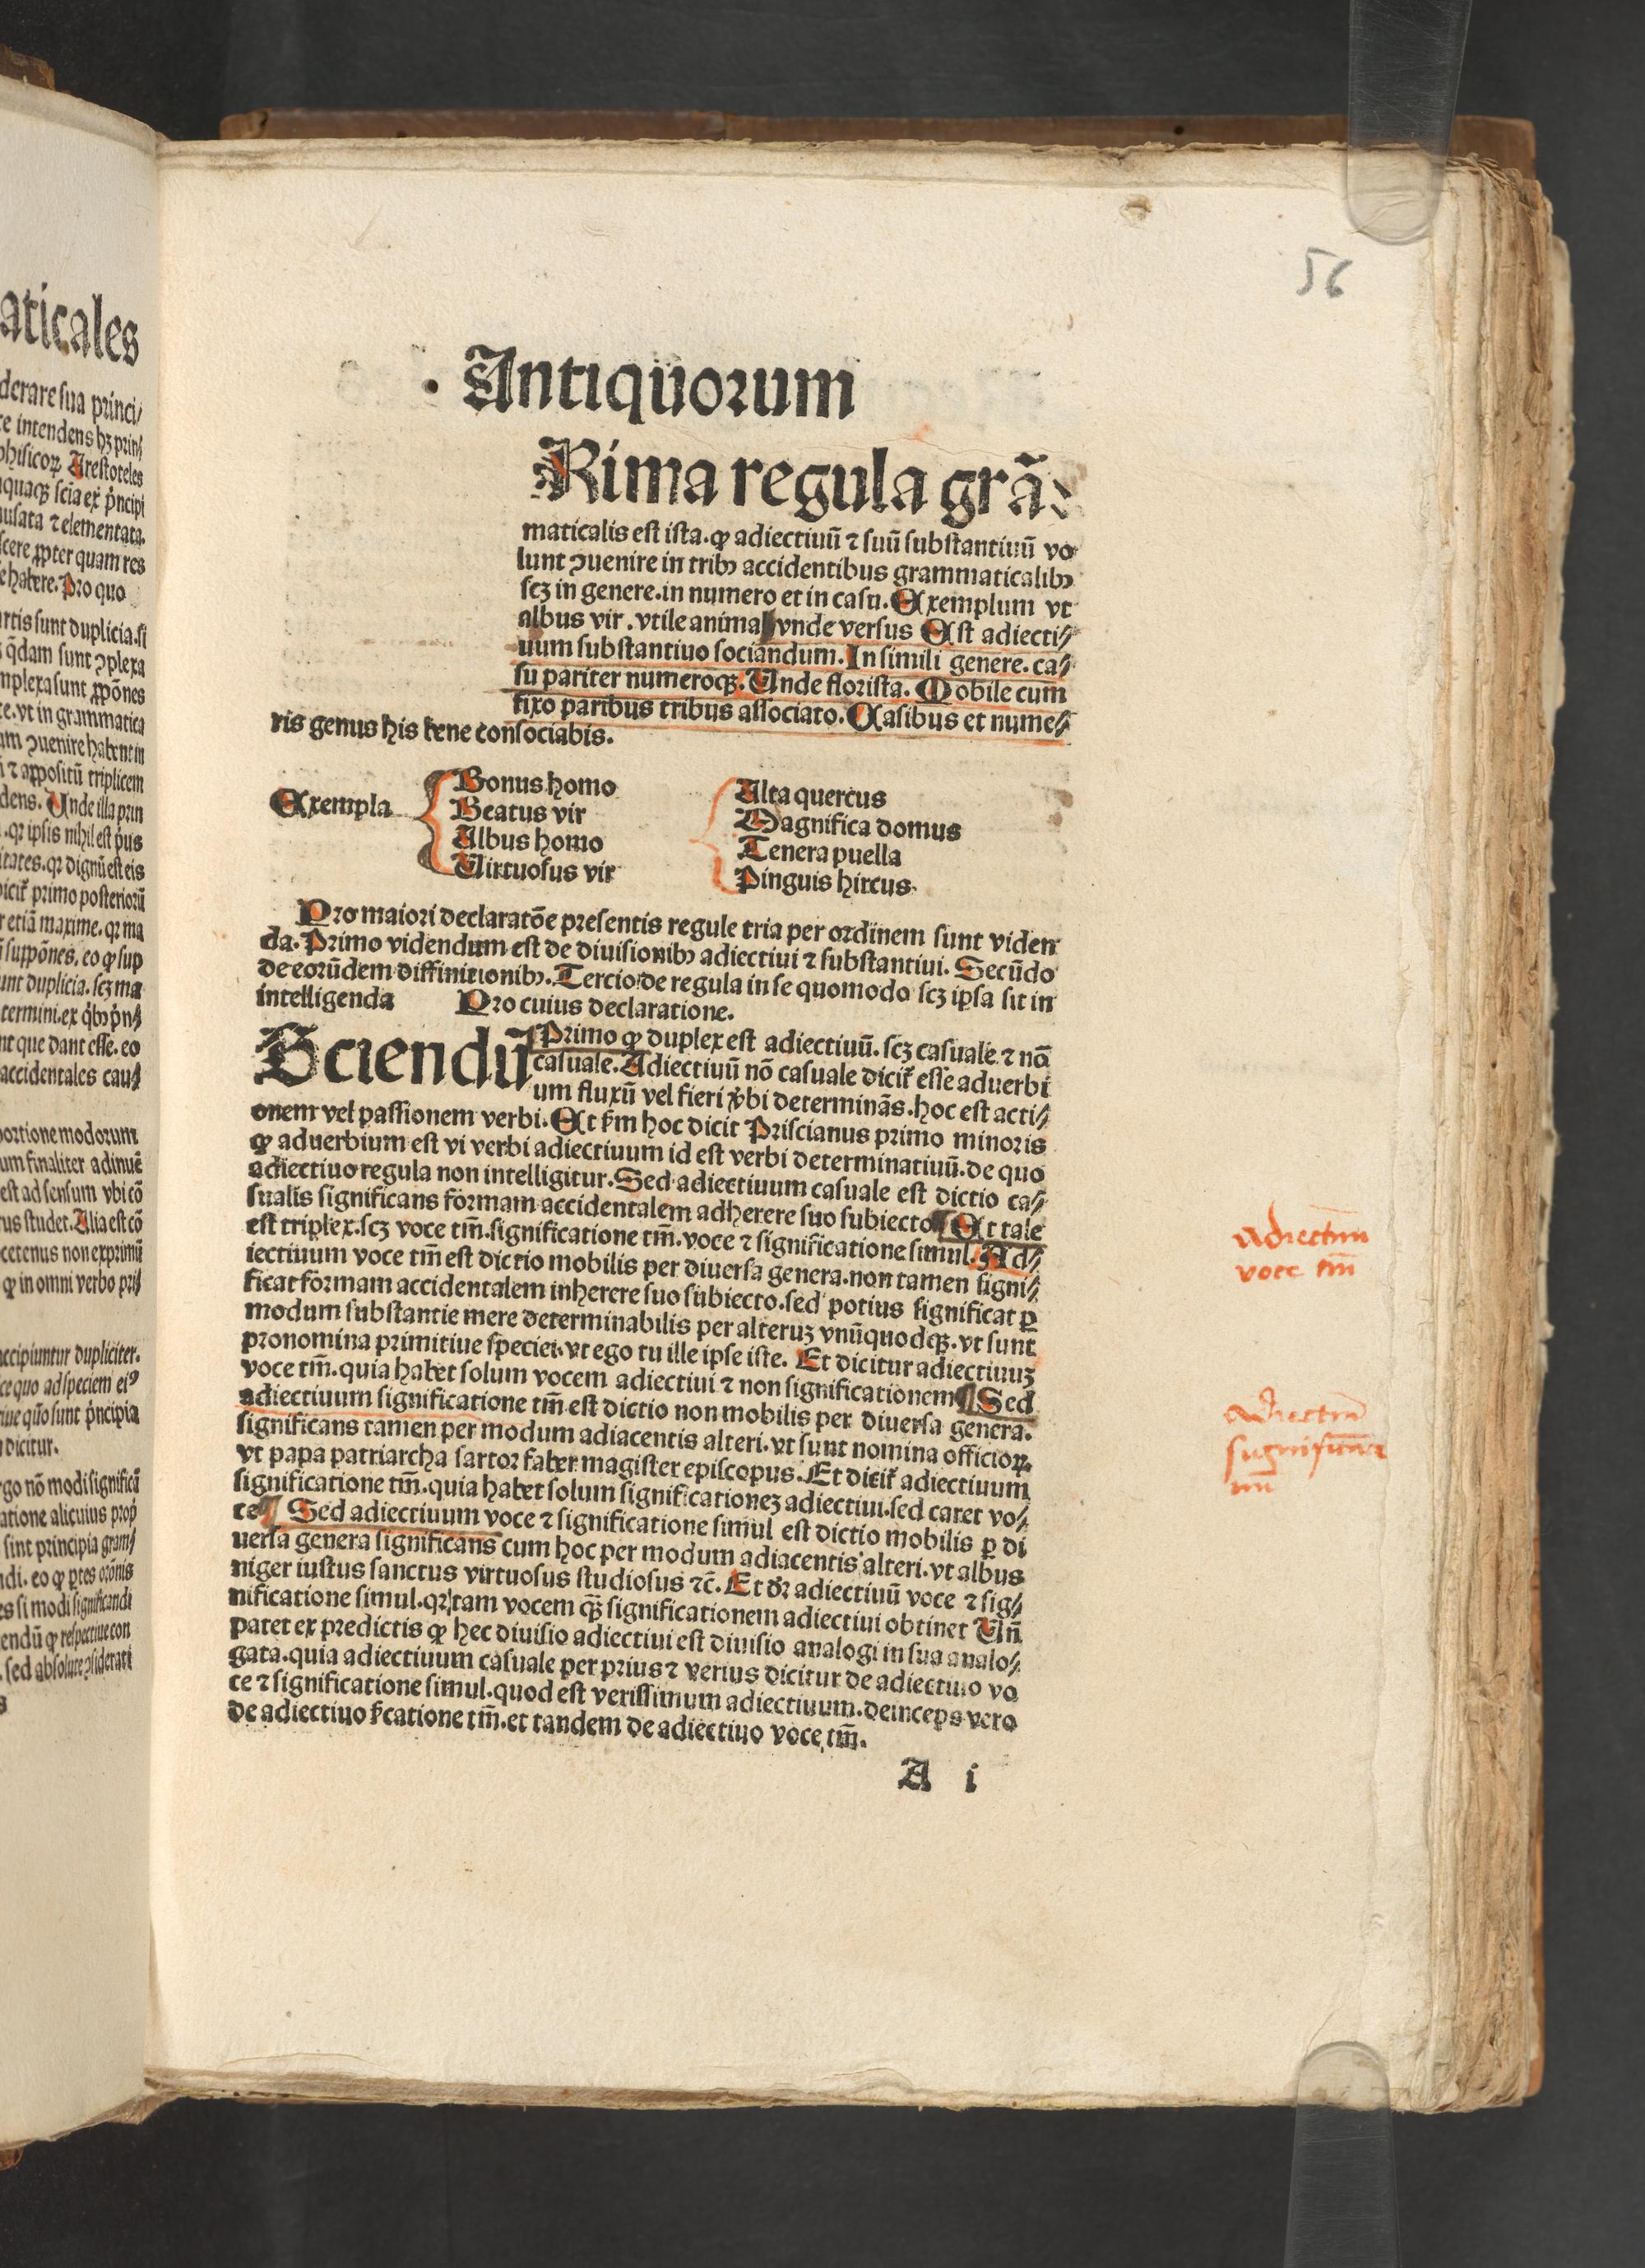 56
Antiquorum
Rima regula grã⸗
maticalis est ista. ꝙ adiectiuũ ⁊ suũ substantiuũ vo
lunt ꝯuenire in tribꝰ accidentibus grammaticalibꝰ
scꝫ in genere. in numero et in casu. Exemplum vt
albus vir. vtile animal vnde versus Est adiecti⸗
uum substantiuo sociandum. In simili genere. ca⸗
su pariter numeroqꝫ. Unde florista. Mobile cum
fixo paribus tribus associato. Casibus et nume⸗
ris genus his bene consociabis.
Exempla
Bonus homo
Beatus vir
Albus homo
Virtuosus vir
Alta quercus
Magnifica domus
Tenera puella
Pinguis hircus
Pro maiori declaratõe presentis regule tria per ordinem sunt viden
da. Primo videndum est de diuisionibꝰ adiectiui ⁊ substantiui. Secũdo
de eorũdem diffinitionibꝰ. Tercio de regula in se quomodo scꝫ ipsa sit in
intelligenda Pro cuius declaratione.
Sciendũ Primo ꝙ duplex est adiectiuũ. scꝫ casuale ⁊ nõ
casuale. Adiectiuũ nõ casuale dicit̃ esse aduerbi
um fluxũ vel fieri v̾bi determinãs. hoc est acti⸗
onem vel passionem verbi. Et ẜm hoc dicit Priscianus primo minoris
ꝙ aduerbium est vi verbi adiectiuum id est verbi determinatiuũ. de quo
adiectiuo regula non intelligitur. Sed adiectiuum casuale est dictio ca⸗
sualis significans formam accidentalem adherere suo subiecto Et tale
est triplex. scꝫ voce tm̃. significatione tm̃. voce ⁊ significatione simul. Ad⸗
iectiuum voce tm̃ est dictio mobilis per diuersa genera. non tamen signi⸗
ficat formam accidentalem inherere suo subiecto. sed potius significat ꝑ
modum substantie mere determinabilis per alteruꝫ vnũquodqꝫ. vt sunt
pronomina primitiue speciei. vt ego tu ille ipse iste. Et dicitur adiectiuuꝫ
voce tm̃. quia habet solum vocem adiectiui ⁊ non significationem ¶ Sed
adiectiuum significatione tm̃ est dictio non mobilis per diuersa genera.
significans tamen per modum adiacentis alteri. vt sunt nomina officioꝝ.
vt papa patriarcha sartor faber magister episcopus. Et dicit̃ adiectiuum
significatione tm̃. quia habet solum significationeꝫ adiectiui. sed caret vo⸗
ce ¶ Sed adiectiuum voce ⁊ significatione simul est dictio mobilis ꝑ di
uersa genera significans cum hoc per modum adiacentis alteri. vt albus
niger iustus sanctus virtuosus studiosus ⁊c̃. Et dr̃ adiectiuũ voce ⁊ sig⸗
nificatione simul. qꝛ tam vocem qꝫ̃ significationem adiectiui obtinet Un̄
patet ex predictis ꝙ hec diuisio adiectiui est diuisio analogi in sua analo⸗
gata. quia adiectiuum casuale per prius ⁊ verius dicitur de adiectiuo vo
ce ⁊ significatione simul. quod est verissimum adiectiuum. deinceps vero
de adiectiuo ẜcatione tm̃. et tandem de adiectiuo voce tm̃.
A i
Adiectiuũ
voce tm̃
aticales
derare sua princi⸗
phisicoꝝ Arestoteles
usata ⁊ elementata.
e habere. Pro quo
artis sunt duplicia. si
te. vt in grammatica
dens. Unde illa prin
accidentales cau⸗
portione modorum
um finaliter adinuẽ
est ad sensum vbi cõ
rus studet. Alia est cõ
ꝙ in omni verbo pri⸗
accipiuntur dupliciter.
dicitur.